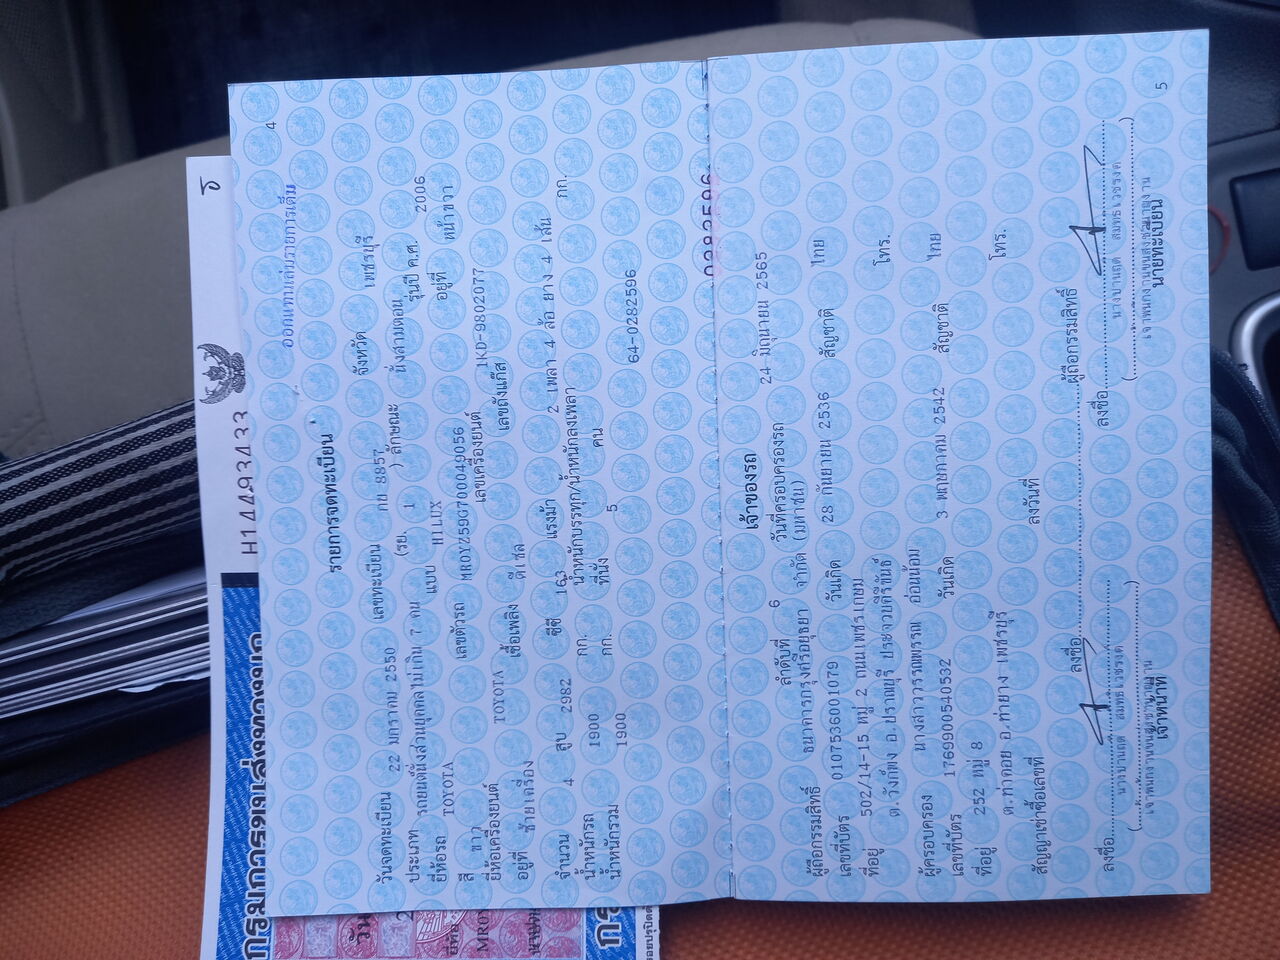 4
ออกแทนเล่มรายการเต็ม
รายการจดทะเบียน
วันจดทะเบียน 22 มกราคม 2550 เลขทะเบียน กบ 8857 จังหวัด เพชรบุรี
ประเภท รถยนต์นั่งส่วนบุคคลไม่เกิน 7 คน (รย. 1 ) ลักษณะ นั่งสามตอน
ยี่ห้อรถ TOYOTA แบบ HILUX รุ่นปี ค.ศ. 2006
สี ขาว เลขตัวรถ MR0YZ59G700049056 อยู่ที่ หน้าขวา
ยี่ห้อเครื่องยนต์ TOYOTA เลขเครื่องยนต์ 1KD-9802077
อยู่ที่ ซ้ายเครื่อง เชื้อเพลิง ดีเซล เลขถังแก๊ส
จำนวน 4 สูบ 2982 ซีซี 163 แรงม้า 2 เพลา 4 ล้อ ยาง 4 เส้น
น้ำหนักรถ 1900 กก. น้ำหนักบรรทุก/น้ำหนักลงเพลา กก.
น้ำหนักรวม 1900 กก. ที่นั่ง 5 คน
64-0282596
0282596
เจ้าของรถ
ลำดับที่ 6 วันที่ครอบครองรถ 24 มิถุนายน 2565
ผู้ถือกรรมสิทธิ์ ธนาคารกรุงศรีอยุธยา จำกัด (มหาชน)
เลขที่บัตร 0107536001079 วันเกิด 28 กันยายน 2536 สัญชาติ ไทย
ที่อยู่ 502/14-15 หมู่ 2 ถนนเพชรเกษม
ต.วังก์พง อ.ปราณบุรี ประจวบคีรีขันธ์ โทร.
ผู้ครอบครอง นางสาววรรณพรรณ อ่อนน้อม
เลขที่บัตร 1769900540532 วันเกิด 3 พฤษภาคม 2542 สัญชาติ ไทย
ที่อยู่ 252 หมู่ 8
ต.ท่าคอย อ.ท่ายาง เพชรบุรี โทร.
สัญญาเช่าซื้อเลขที่ ลงวันที่
ลงชื่อ ผู้ถือกรรมสิทธิ์
ลงชื่อ ลงชื่อ
เจ้าพนักงานขนส่งชำนาญงาน เจ้าพนักงานขนส่งชำนาญงาน
เจ้าหน้าที่ นายทะเบียน
5
H14493433
กรมการขนส่งทางบก